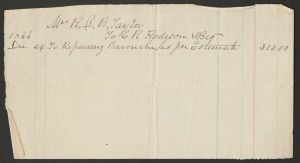 Mr R. D. B. Taylor
To E R Hodgson & Bro
1866
Dec 24 To Repairing Barouche as per Estimate $10.00